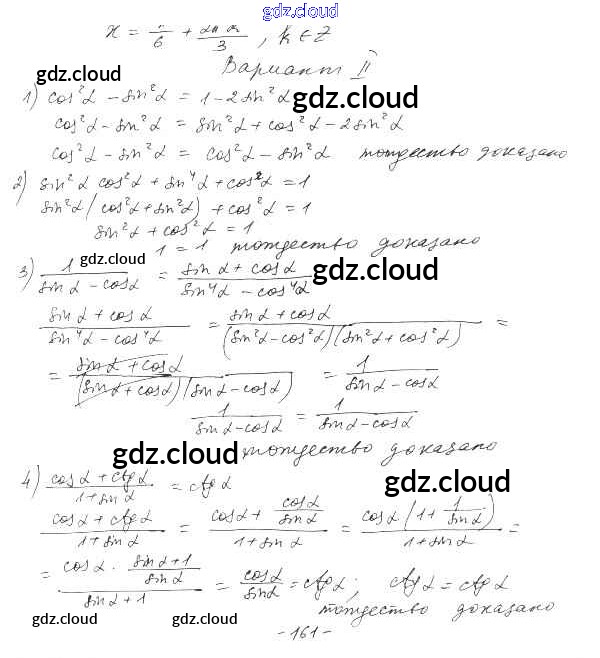 gdz.cloud
x = π/6 + 2πk/3, k ∈ Z
gdz.cloud
Вариант II
1) cos²α - sin²α = 1 - 2sin²α gdz.cloud
cos²α - sin²α = sin²α + cos²α - 2sin²α
cos²α - sin²α = cos²α - sin²α тождество доказано
2) sin²α cos²α + sin⁴α + cos²α = 1
sin²α (cos²α + sin²α) + cos²α = 1
sin²α + cos²α = 1
1 = 1 тождество доказано
gdz.cloud
3) 1/(sin α - cos α) = (sin α + cos α)/(sin⁴α - cos⁴α) gdz.cloud
(sin α + cos α)/(sin⁴α - cos⁴α) = (sin α + cos α)/((sin²α - cos²α)(sin²α + cos²α)) =
= (sin α + cos α)/((sin α + cos α)(sin α - cos α)) = 1/(sin α - cos α)
1/(sin α - cos α) = 1/(sin α - cos α)
gdz.cloud тождество доказано
4) (cos α + ctg α)/(1 + sin α) = ctg α gdz.cloud
(cos α + ctg α)/(1 + sin α) = (cos α + cos α/sin α)/(1 + sin α) = cos α (1 + 1/sin α)/(1 + sin α) =
= (cos α · (sin α + 1)/sin α)/(sin α + 1) = cos α/sin α = ctg α; ctg α = ctg α
тождество доказано
gdz.cloud gdz.cloud gdz.cloud
-161-